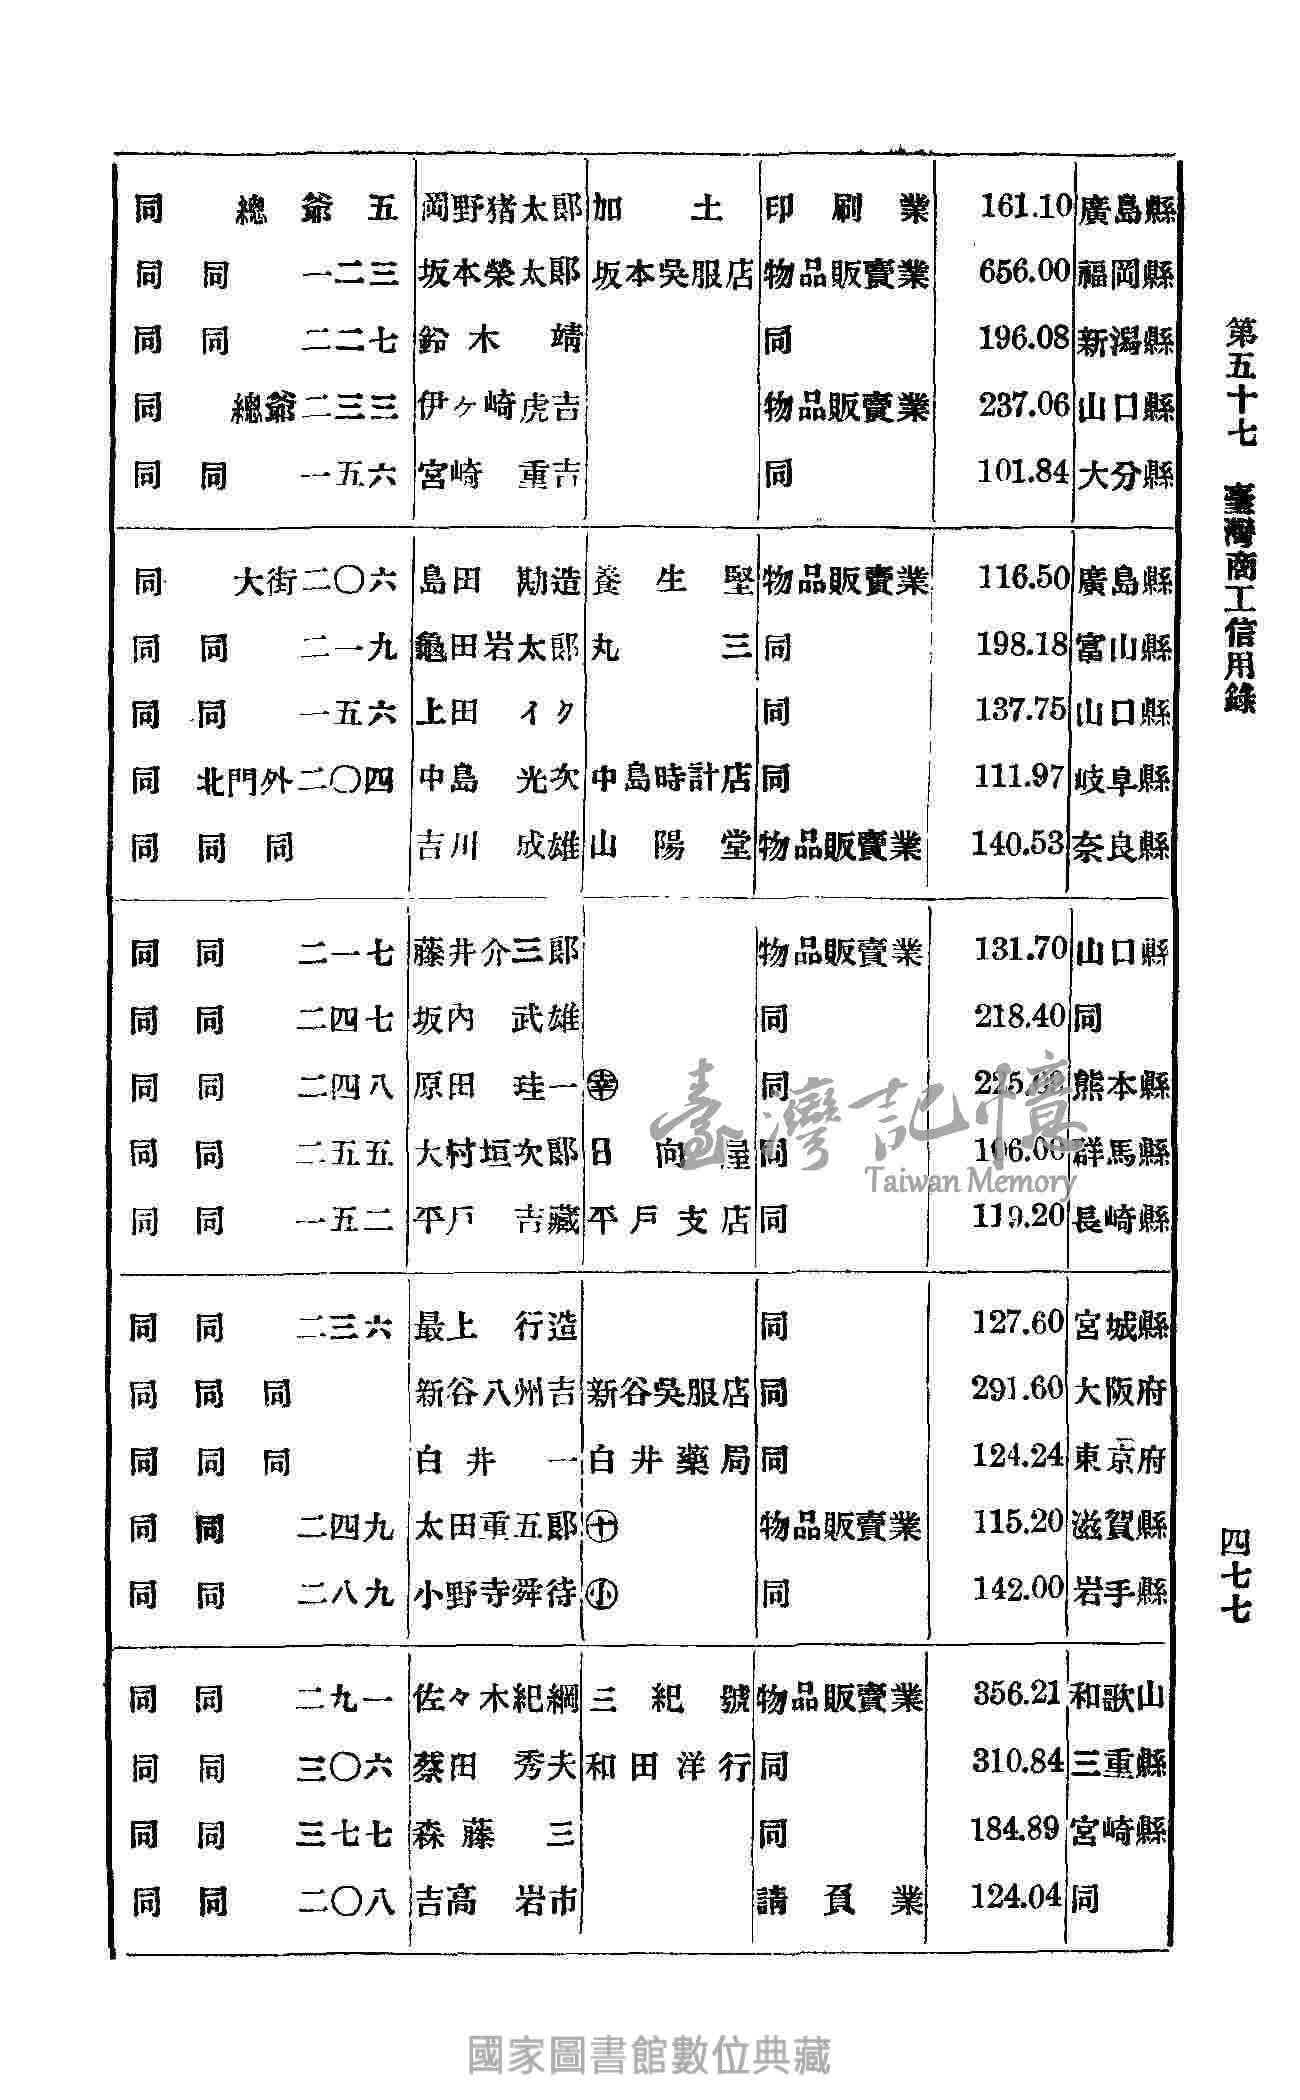 第五十七　臺灣商工信用錄
四七七
同　總爺五　岡野猪太郎　加土　印刷業　161.10　廣島縣
同　同　一二三　坂本榮太郎　坂本吳服店　物品販賣業　656.00　福岡縣
同　同　二二七　鈴木靖　同　196.08　新潟縣
同　總爺二三三　伊ヶ崎虎吉　物品販賣業　237.06　山口縣
同　同　一五六　宮崎重吉　同　101.84　大分縣
同　大街二〇六　島田勘造　養生堅　物品販賣業　116.50　廣島縣
同　同　二一九　龜田岩太郎　丸三　同　198.18　富山縣
同　同　一五六　上田イク　同　137.75　山口縣
同　北門外二〇四　中島光次　中島時計店　同　111.97　岐阜縣
同　同　同　吉川成雄　山陽堂　物品販賣業　140.53　奈良縣
同　同　二一七　藤井介三郎　物品販賣業　131.70　山口縣
同　同　二四七　坂內武雄　同　218.40　同
同　同　二四八　原田珪一　㊌　同　熊本縣
同　同　二五五　大村垣次郎　日向屋　同　群馬縣
同　同　一五二　平戶吉藏　平戶支店　同　119.20　長崎縣
同　同　二三六　最上行造　同　127.60　宮城縣
同　同　同　新谷八州吉　新谷吳服店　同　291.60　大阪府
同　同　同　白井一　白井藥局　同　124.24　東京府
同　同　二四九　太田重五郎　㊉　物品販賣業　115.20　滋賀縣
同　同　二八九　小野寺舜待　小　同　142.00　岩手縣
同　同　二九一　佐々木紀綱　三紀號　物品販賣業　356.21　和歌山
同　同　三〇六　蔡田秀夫　和田洋行　同　310.84　三重縣
同　同　三七七　森藤三　同　184.89　宮崎縣
同　同　二〇八　吉高岩市　請負業　124.04　同
臺灣記憶
Taiwan Memory
國家圖書館數位典藏